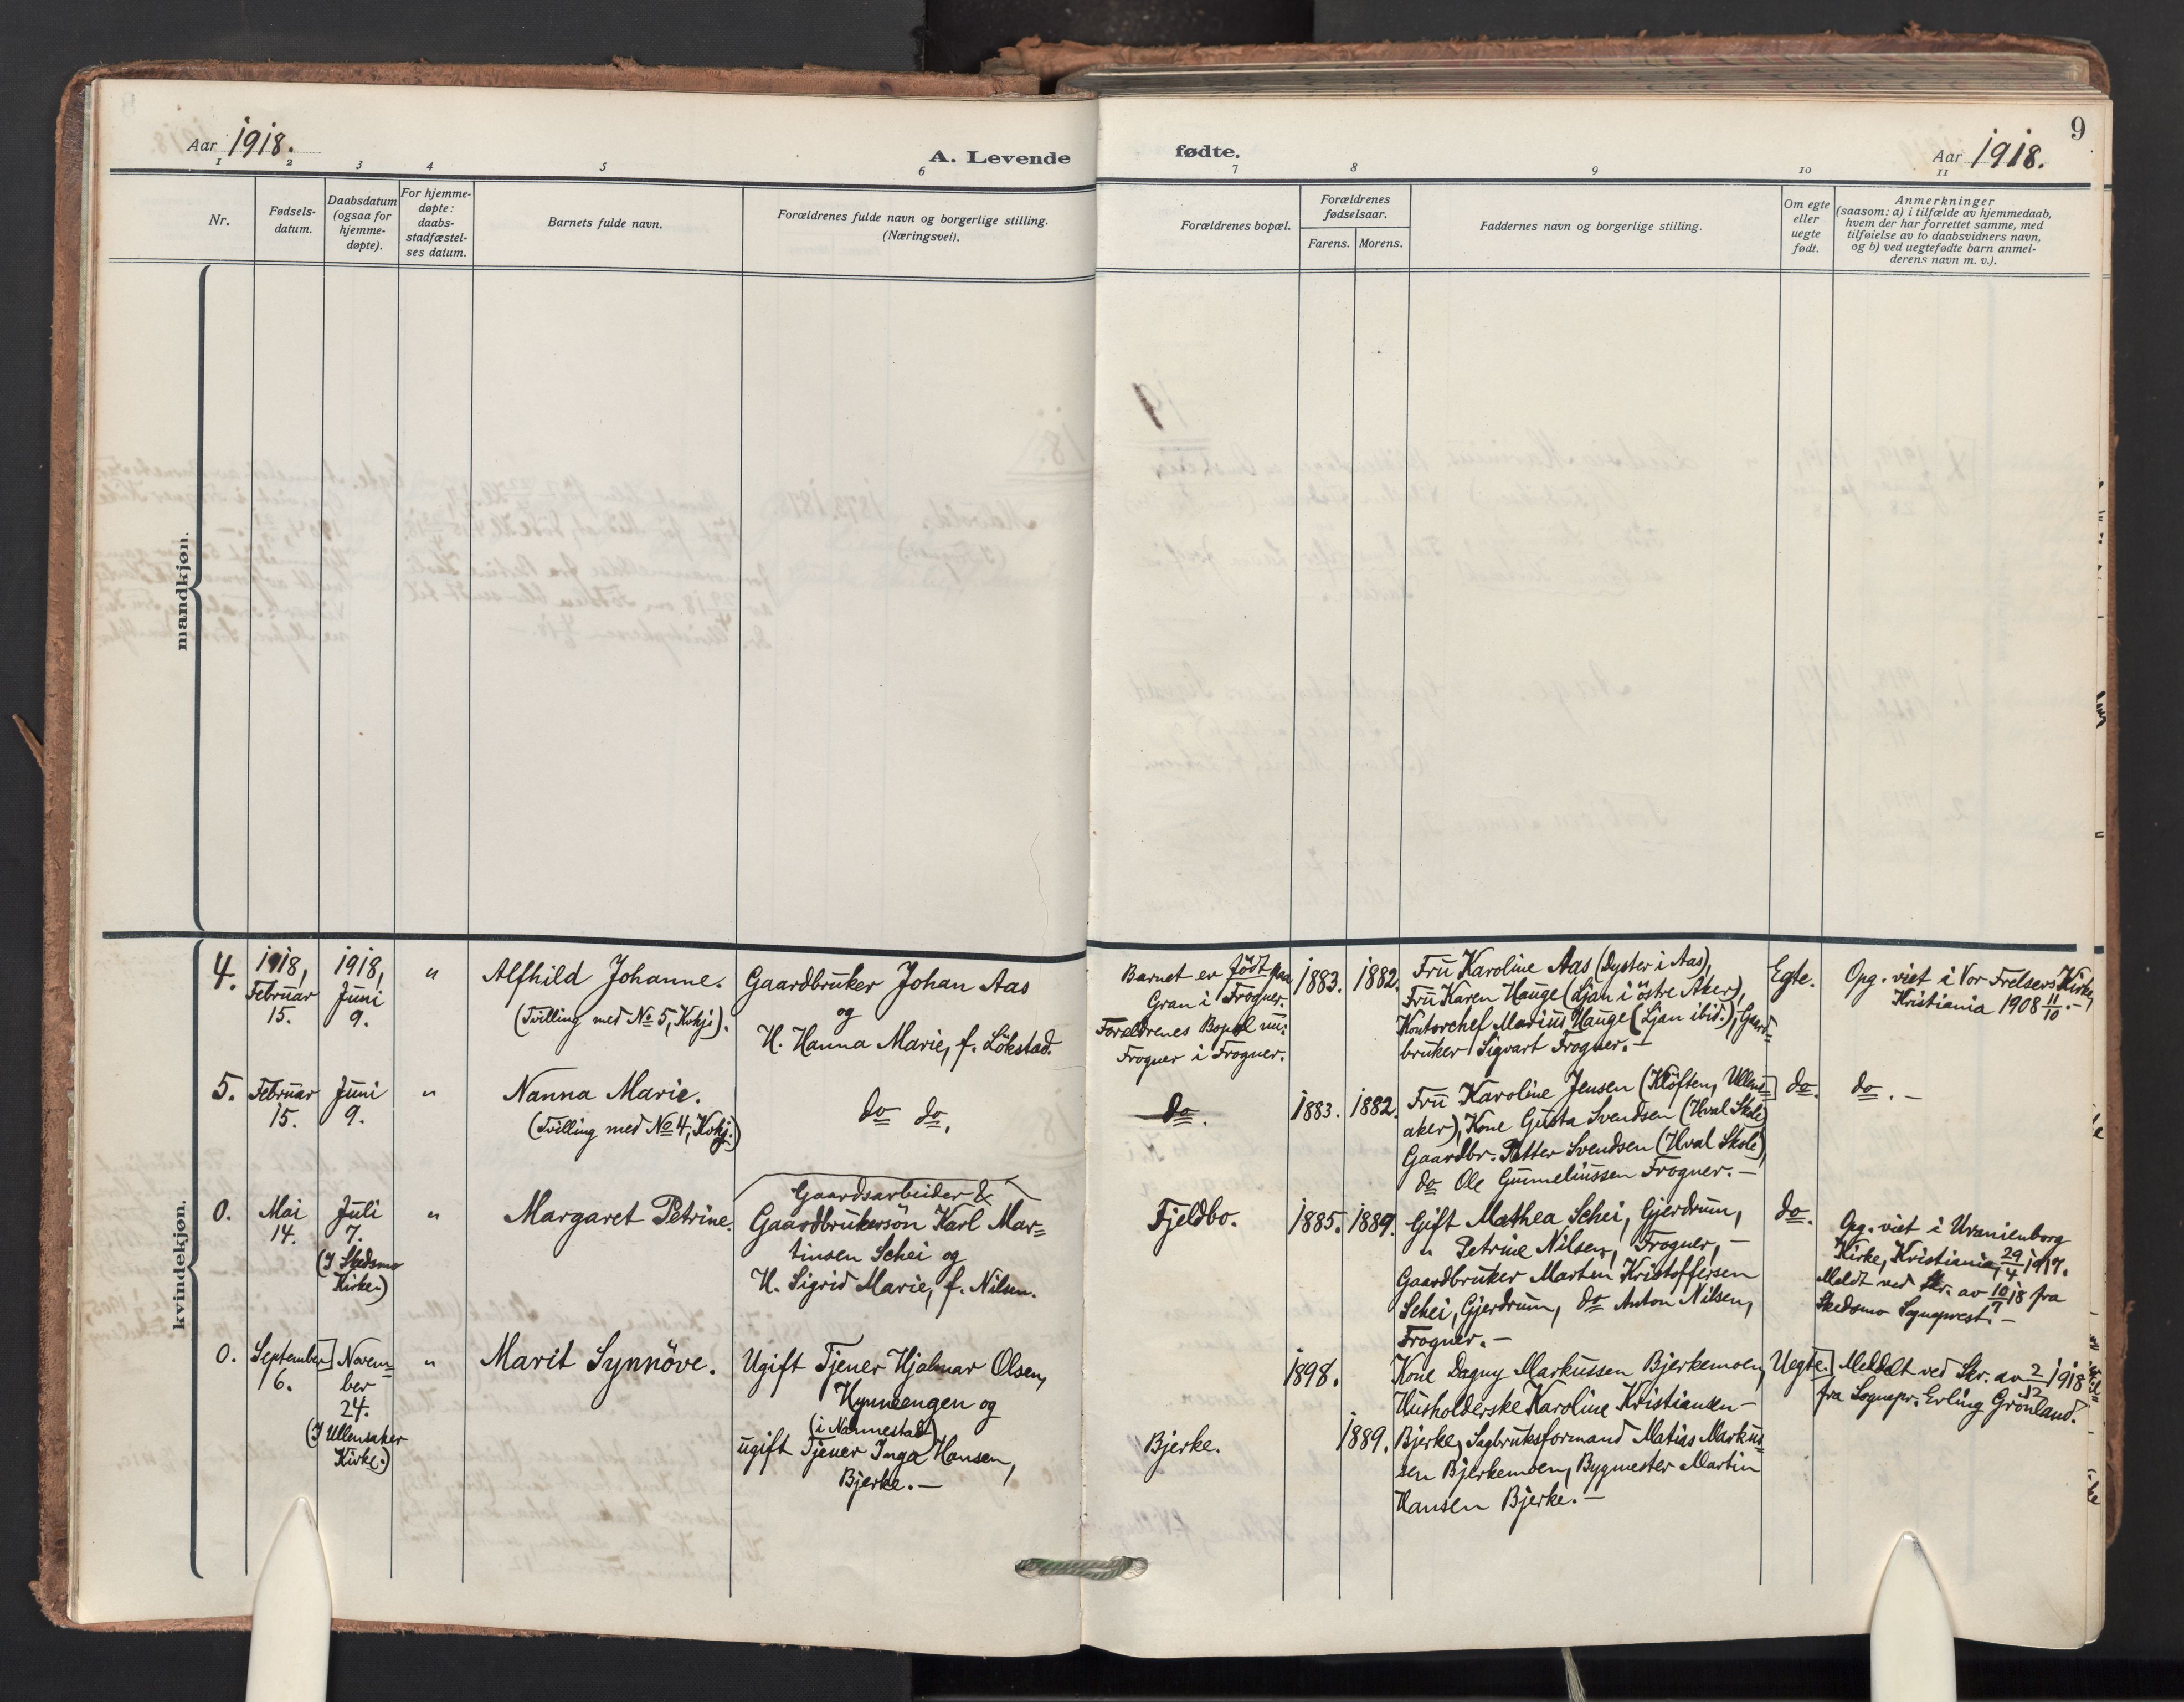 Aar 1918.
A. Levende
fødte.
Aar 1918.
9
1
2
3
4
5
6
7
8
9
10
11
Nr.
Fødsels-
datum.
Daabsdatum
(ogsaa for
hjemme-
døpte).
For hjemme-
døpte:
daabs-
stadfæstel-
ses datum.
Barnets fulde navn.
Forældrenes fulde navn og borgerlige stilling.
(Næringsvei).
Forældrenes bopæl.
Forældrenes
fødselsaar.
Farens.
Morens.
Faddernes navn og borgerlige stilling.
Om egte
eller
uegte
født.
Anmerkninger
(saasom: a) i tilfælde av hjemmedaab,
hvem der har forrettet samme, med
tilføielse av to daabsvidners navn,
og b) ved uegtefødte barn anmel-
derens navn m. v.).
mandkjøn.
kvindekjøn.
4.
1918,
Februar
15.
1918,
Juni
9.
"
Alfhild Johanne.
(Tvilling med No 5, Kvkj.).
Gaardbruker Johan Aas
og
H. Hanna Marie, f. Lökstad.
Barnet er født paa
Gran i Frogner.
Foreldrenes Bopæl nu:
Frogner i Frogner.
1883.
1882.
Fru Karoline Aas (Dyster i Aas),
Fru Karen Hauge (Ljan i östre Aker),
Kontorchef Marius Hauge (Ljan ibid.), Gaard-
bruker Sigvart Frogner. —
Egte.
Opg. viet i Vor Frelsers Kirke,
Kristiania 1908 11/10. —
5.
Februar
15.
Juni
9.
"
Nanna Marie.
(Tvilling med No 4, Kvkj.)
do do.
do.
1883.
1882.
Fru Karoline Jensen (Klöften, Ullens-
aker), Kone Gusta Svendsen (Hval Skole)
Gaardbr. Petter Svendsen (Hval Skole),
do Ole Gunneliussen Frogner. —
do.
do. —
0.
Mai
14.
Juli
7.
(I Skedsmo
Kirke.)
"
Margaret Petrine.
Gaardsarbeider &
Gaardbrukersön Karl Mar=
tinsen Schei og
H. Sigrid Marie, f. Nilsen.
Fjeldbo.
1885.
1889.
Gift Mathea Schei, Gjerdrum,
" Petrine Nilsen, Frogner, —
Gaardbruker Marten Kristoffersen
Schei, Gjerdrum, do Anton Nilsen,
Frogner. —
do.
Opg. viet i Uranienborg
Kirke, Kristiania, 29/4 1917.
Meldt ved Skr. av 10/7 18 fra
Skedsmo Sogneprest. —
0.
September
6.
Novem=
ber
24.
(I Ullensaker
Kirke.)
"
Marit Synnöve.
Ugift Tjener Hjalmar Olsen,
Kynneengen og
(i Nannestad)
ugift Tjener Inga Hansen,
Bjerke. —
Bjerke.
1898.
1889.
Kone Dagny Markussen Bjerkemoen,
Husholderske Karoline Kristiansen —
Bjerke, Sagbruksformand Matias Markus=
sen Bjerkemoen, Bygmester Martin
Hansen Bjerke. —
Uegte.
Meddelt ved Skr. av 2/12 1918
fra Sognepr. Erling Grönland.